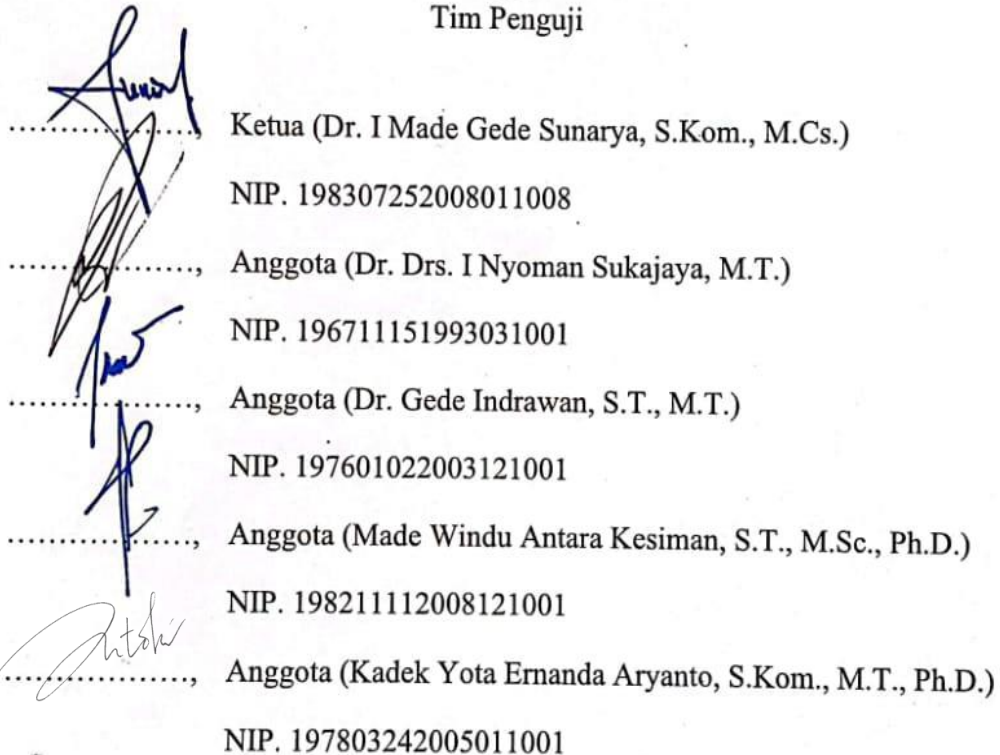 Tim Penguji
...................., Ketua (Dr. I Made Gede Sunarya, S.Kom., M.Cs.)
NIP. 198307252008011008
...................., Anggota (Dr. Drs. I Nyoman Sukajaya, M.T.)
NIP. 196711151993031001
...................., Anggota (Dr. Gede Indrawan, S.T., M.T.)
NIP. 197601022003121001
...................., Anggota (Made Windu Antara Kesiman, S.T., M.Sc., Ph.D.)
NIP. 198211112008121001
...................., Anggota (Kadek Yota Ernanda Aryanto, S.Kom., M.T., Ph.D.)
NIP. 197803242005011001